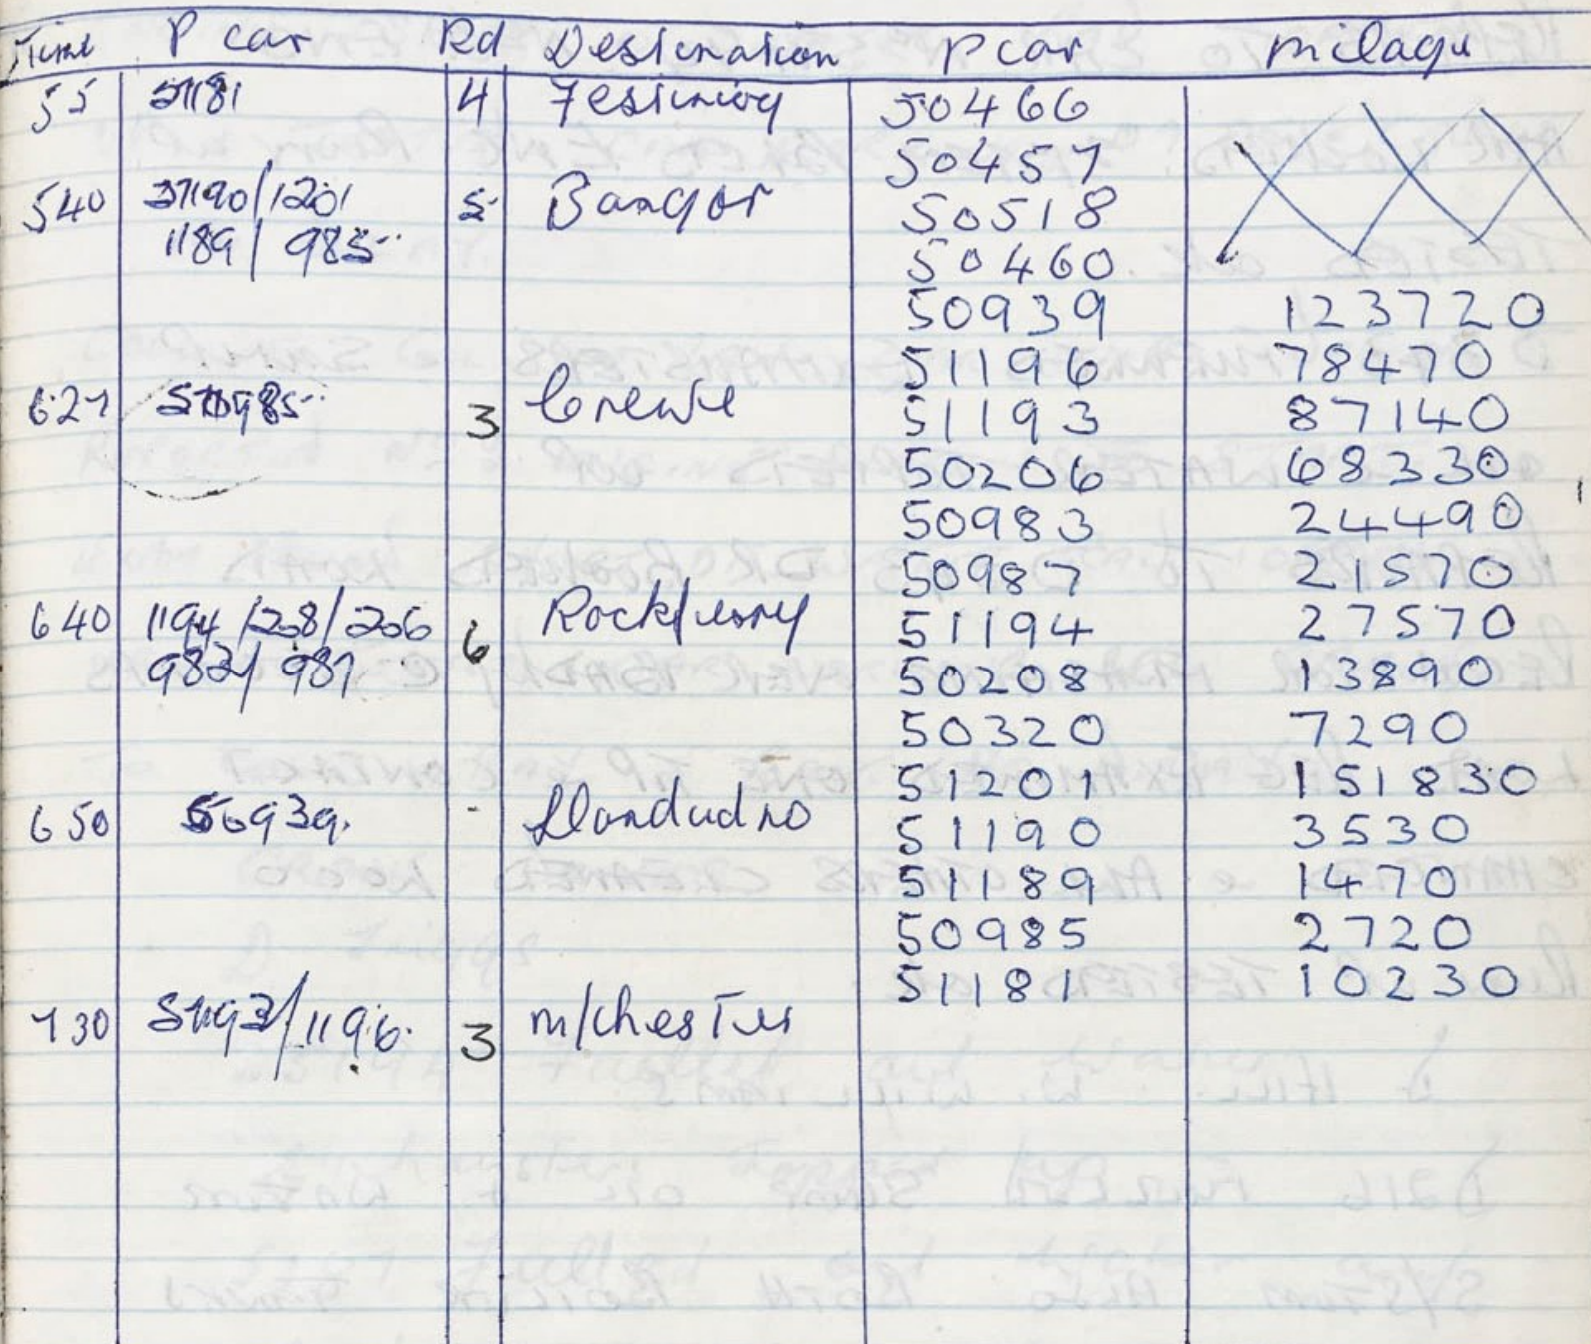 Time P car Rd Destination P car milage
55 51181 4 Festiniog 50466
50457
540 51190/1201 5 Bangor 50518
1189/985 50460
50939 123720
51196 78470
627 50985 3 Crewe 51193 87140
50206 68330
50983 24490
50987 21570
640 1194/208/206 6 Rockferry 51194 27570
983/987 50208 13890
50320 7290
51201 151830
650 50939. - Llandudno 51190 3530
51189 1470
50985 2720
51181 10230
730 51193/1196. 3 m/chester